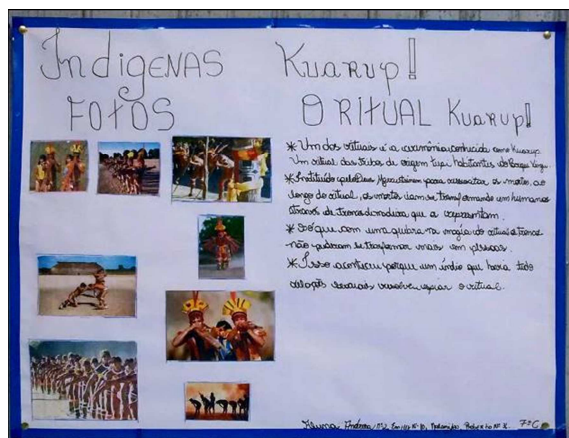 Indigenas
Fotos
Kuarup!
O Ritual Kuarup!
* Um dos rituais é a cerimônia conhecida como Kuarup.
Um ritual das tribos de origem tupi habitantes do Parque Xingu.
* Instituído pelo para ressuscitar os mortos, ao
longo do ritual, os mortos iam se transformando em humanos
através de troncos de madeira que a representam.
* Só que com uma quebra na magia do ritual os troncos
não puderam se transformar mais em pessoas.
* Isso aconteceu porque um índio que havia tido
relações sexuais resolveu espiar o ritual.
Aluna 7ª C